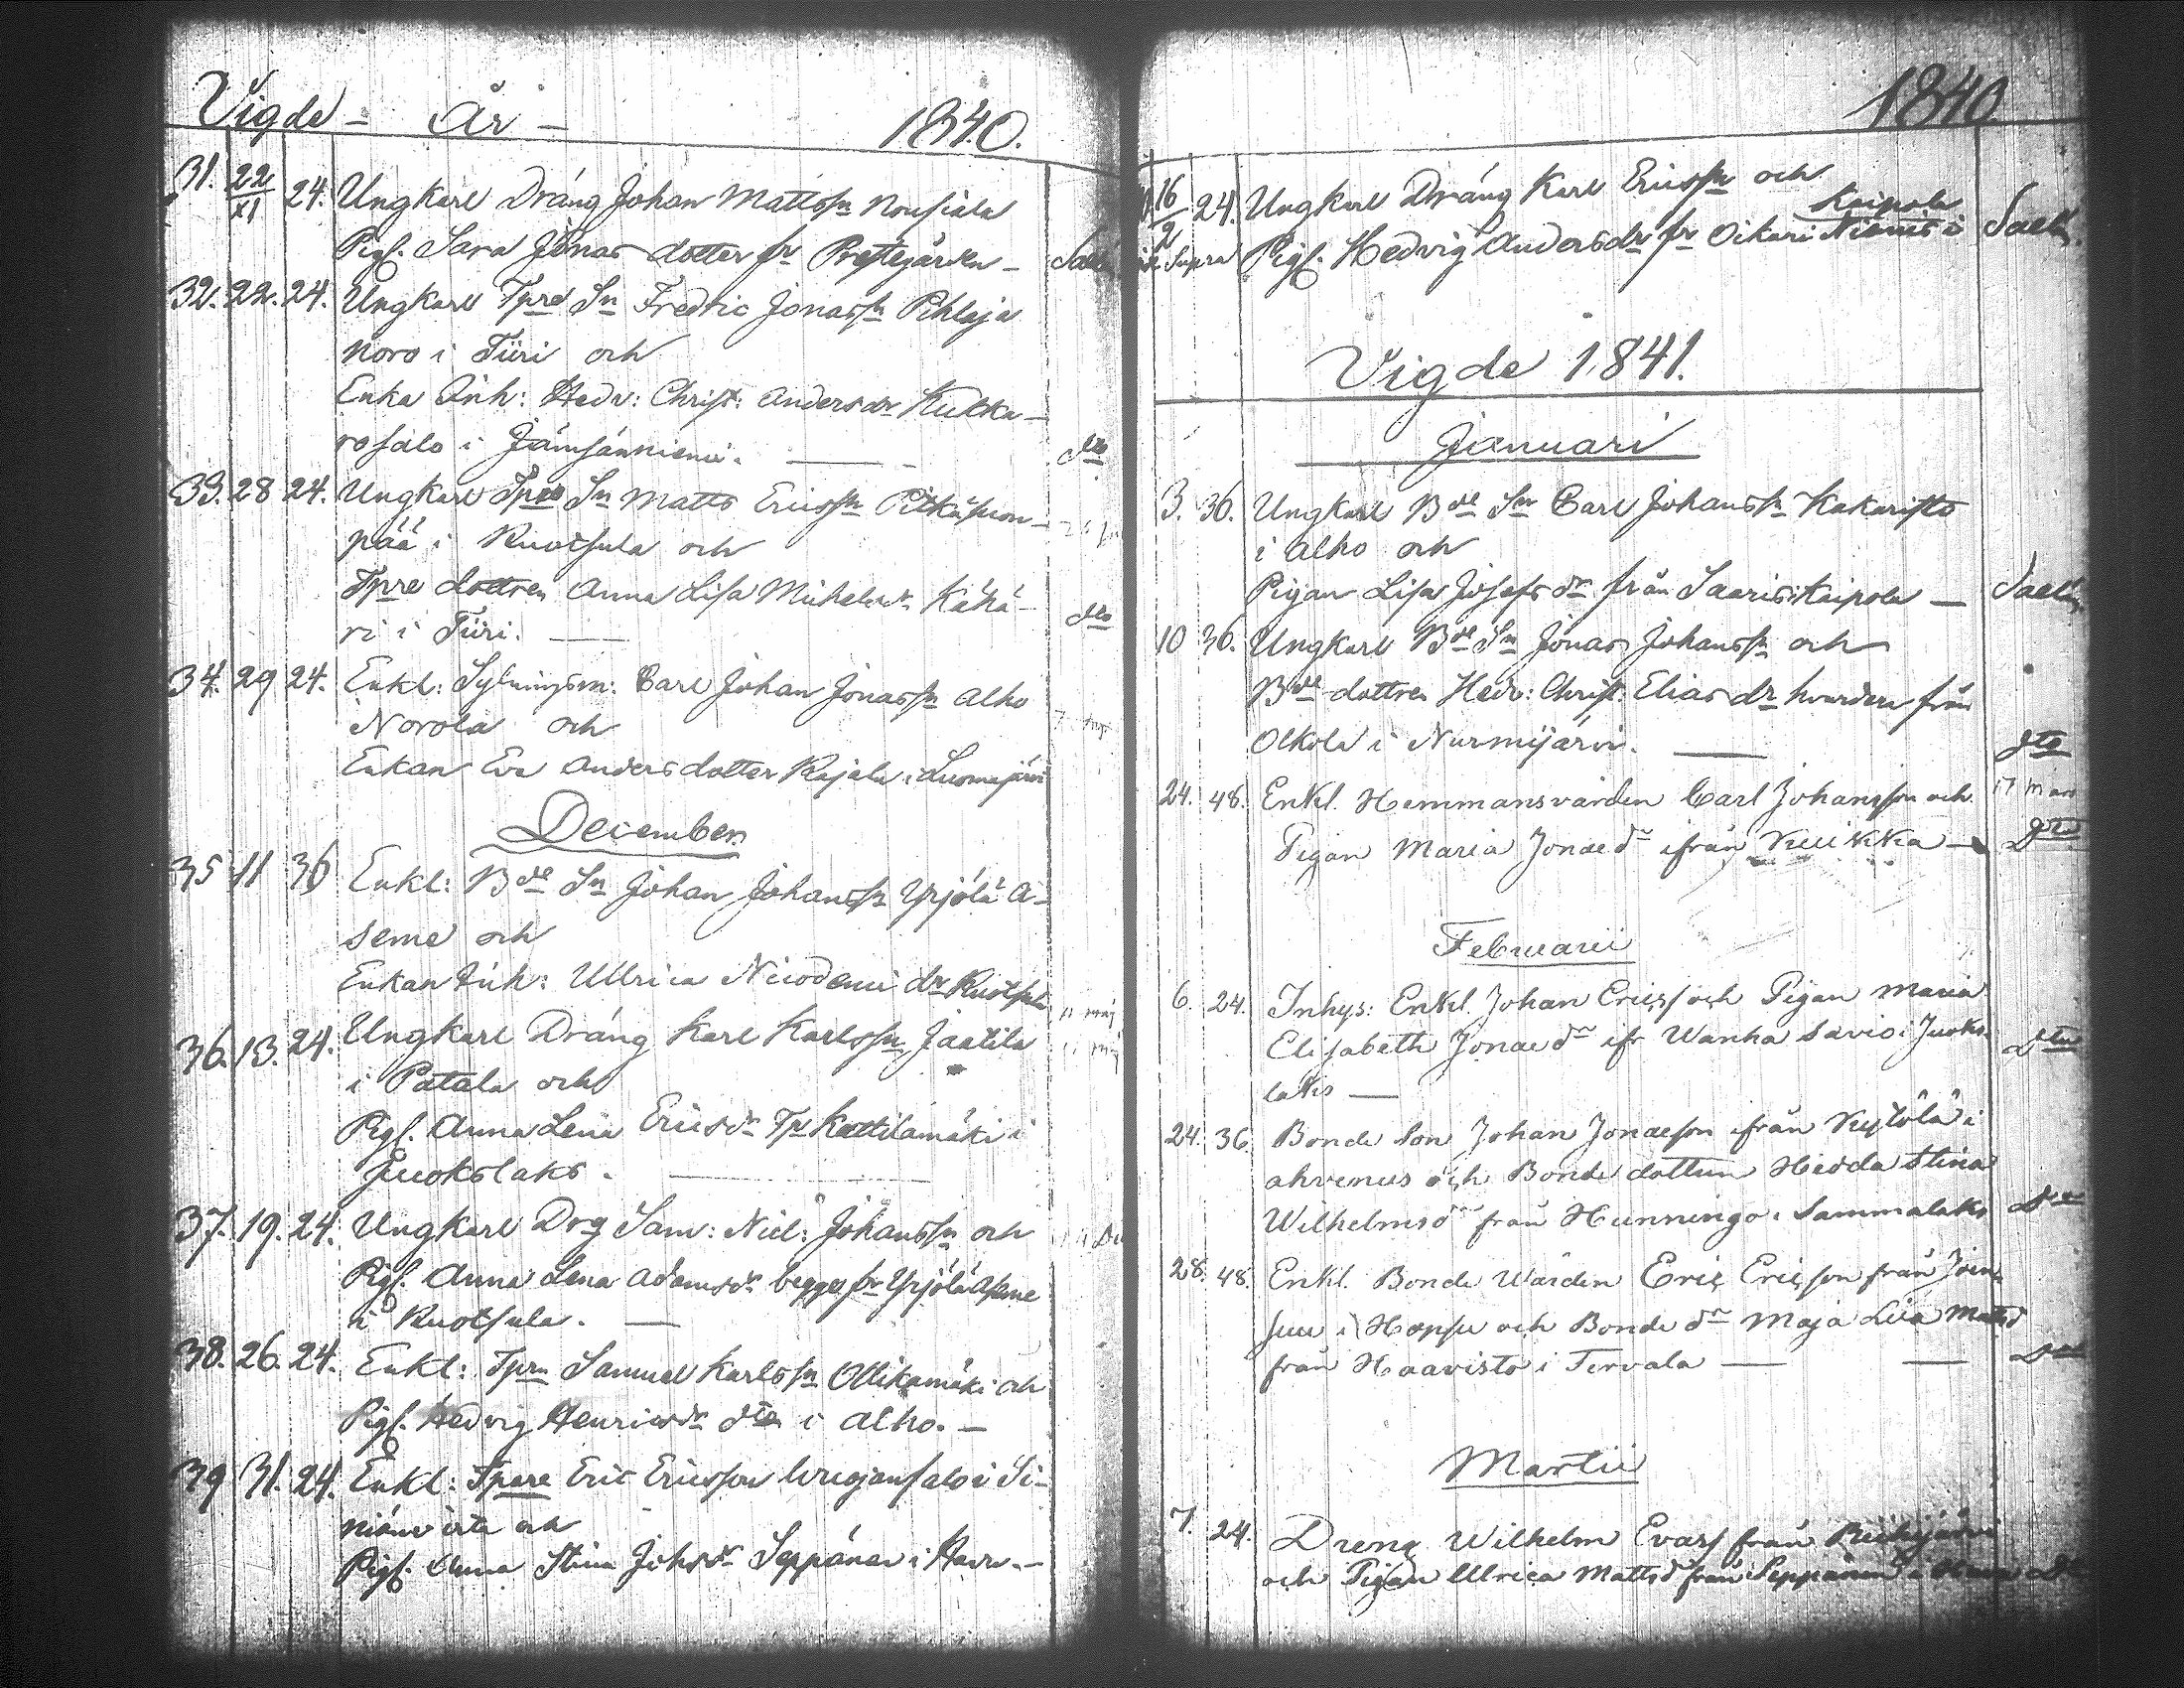 Vigde - År - 1840.
31. 22/XI 24. Ungkarl Dräng Johan Mattssn Nousiala
Pigf. Sara Jonas dotter fr Prestegården -
32. 22. 24. Ungkarl Tpre Sn Fredric Jonassn Pihlaja
noro i Tiiri och
Enka Inh: Hedv: Christ: Andersdr Kukka-
rosalo i Jämsänniemi. dto
33. 28 24. Ungkarl Tpre Sn Matts Ericssn Pitkäsuon-
pää i Ruotsula och
Tpre dottren Anna Lisa Michelsdr Kähä-
ri i Tiiri. dto
34. 29 24. Enkl: Sytningsm: Carl Johan Jonassn Alho
Norola och
Enkan Eva Andersdotter Rajala i Luomejärvi
December.
35 11 36 Enkl: Bde Sn Johan Johanssn Yrjölä A-
seme och
Enkan Inh: Ullrica Nicodemi dr Ruotsula
36. 13. 24. Ungkarl Dräng Karl Karlssn Jaatila
i Patala och
Pigf. Anna Lena Ericsdr Tp Kattilamäki i
Juokslaks.
37. 19. 24. Ungkarl Drg Sam: Nicl: Johanssn och
Pigf. Anna Lena Adamsdr begge fr Yrjölä Aseme
i Ruotsula.
38. 26. 24. Enkl: Tpre Samuel Karlssn Ollikamäki och
Pigf. Hedvig Henricsdr dto i Alho. -
39 31. 24. Enkl: Tpare Eric Ericsson i Si-
och
Pigf. Anna Stina Johsdr Seppänen i Haru. -
1840
16/2 24. Ungkarl Dräng Karl Ericssn och
Kaipola
Supra Pigf. Hedvig Andersdr fr Oikari Niemis i
Vigde 1841.
Januari
3. 36. Ungkarl Bde Sn Carl Johanssn Kakaristo
i Alho och
Pigan Lisa Josefs dr från Saaris i Kaipola -
10 36. Ungkarl Bde Sn Jonas Johanssn och
Bde dottren Hedv: Christ. Elias dr hvardera från
Olkola i Nurmijärvi. dto
24. 48. Enkl. Hemmansvärden Carl Johansson och 17 mars
Pigan Maria Jonaedr ifrån Kuukka - Dto
Februarii
6. 24. Inhys: Enkl. Johan Ericss och Pigan Maria
Elisabeth Jonaedr ifr Wanha Savio i Juoks- Dto
laks -
24. 36. Bonde Son Johan Jonaeson ifrån Kylölä i
Ahvenus och Bonde dottren Hedda Stina
Wilhelmsdr från Hunningo i Sammalaks Dto
28. 48. Enkl. Bonde Wärden Eric Ericson från Joen-
suu i Hopsu och Bonde dr Maja Lisa Mattsd
från Haavisto i Tervala - Dto
Martii
7. 24. Dreng Wilhelm Evars från
och Pigan Ulrica Mattsd från Seppänen i